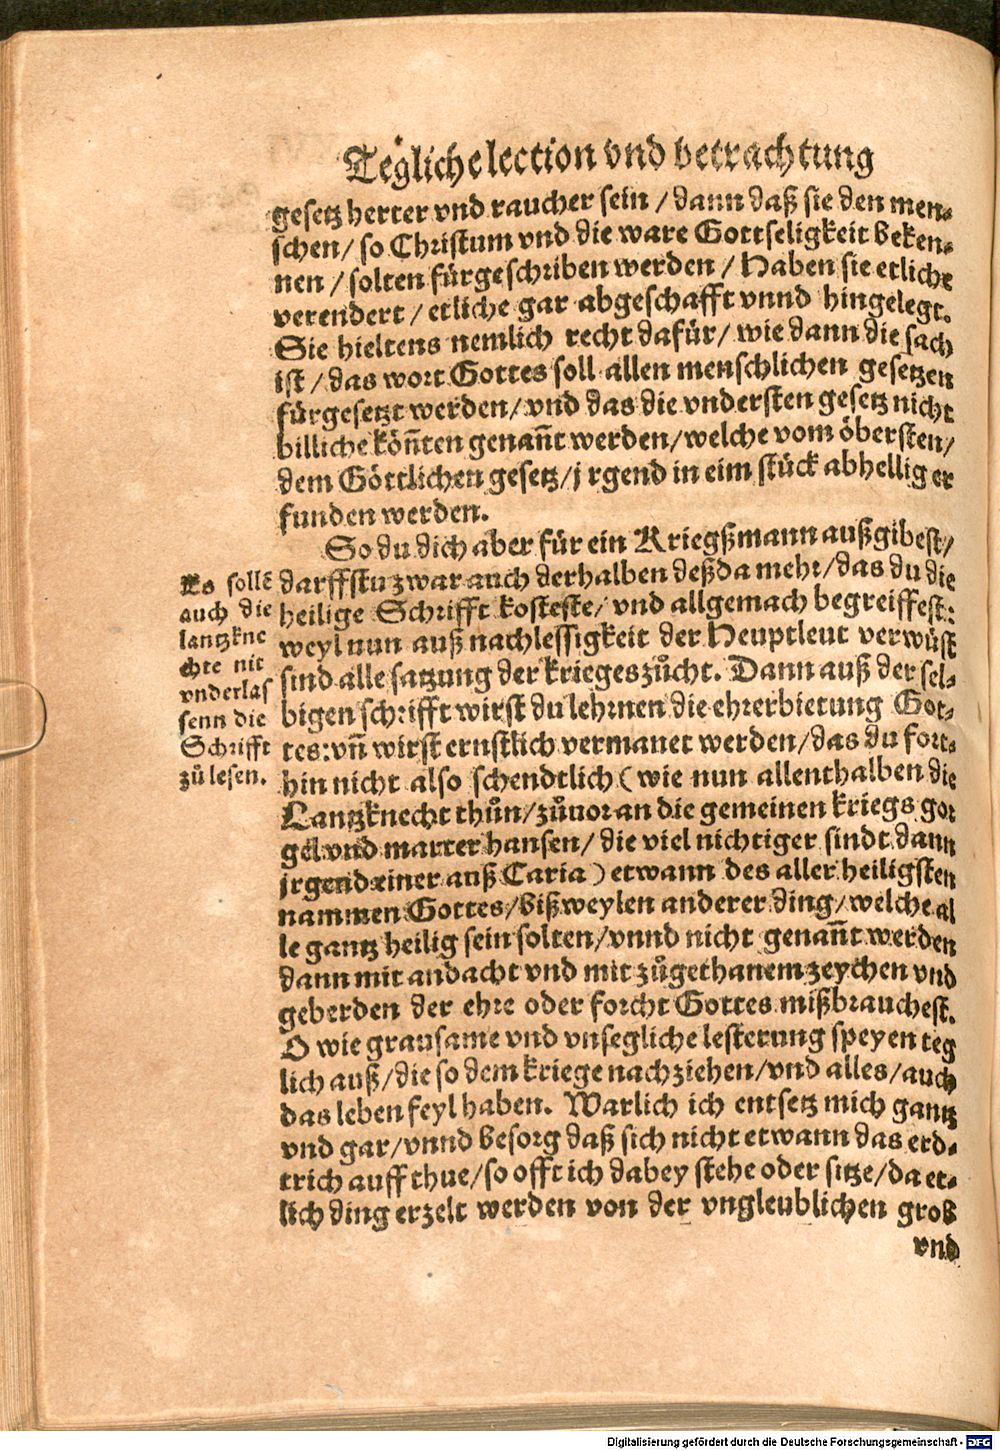 Tegliche lection vnd betrachtung
gesetz herter vnd raucher sein / dann daß sie den men-
schen / so Christum vnd die ware Gottseligkeit beken-
nen / solten fürgeschriben werden / Haben sie etliche
verendert / etliche gar abgeschafft vnnd hingelegt.
Sie hieltens nemlich recht dafür / wie dann die sach
ist / das wort Gottes soll allen menschlichen gesetzen
fürgesetzt werden / vnd das die vndersten gesetz nicht
billiche köñten genañt werden / welche vom öbersten /
dem Göttlichen gesetz / jrgend in eim stück abhellig er
funden werden.
So du dich aber für ein Kriegßmann außgibest /
darffstu zwar auch derhalben deß da mehr / das du die
heilige Schrifft kosteste / vnd allgemach begreiffest:
weyl nun auß nachlessigkeit der Heuptleut verwüst
sind alle satzung der krieges zůcht. Dann auß der sel-
bigen schrifft wirst du lehrnen die ehrerbietung Got-
tes: vñ wirst ernstlich vermanet werden / das du fort-
hin nicht also schendtlich (wie nun allenthalben die
Lantzknecht thůn / zůuor an die gemeinen kriegs gor
gel vnd marter hansen / die viel nichtiger sindt dann
jrgend einer auß Caria) etwann des aller heiligsten
nammen Gottes / bißweylen anderer ding / welche al
le gantz heilig sein solten / vnnd nicht genañt werden
dann mit andacht vnd mit zůgethanem zeychen vnd
geberden der ehre oder forcht Gottes mißbrauchest.
O wie grausame vnd vnsegliche lesterung speyen teg
lich auß / die so dem kriege nachziehen / vnd alles / auch
das leben feyl haben. Warlich ich entsetz mich gantz
vnd gar / vnnd besorg daß sich nicht etwann das erd-
trich auff thue / so offt ich dabey stehe oder sitze / da et-
lich ding erzelt werden von der vngleublichen groß
vnd
Es sollẽ
auch die
lantzkne
chte nit
vnderlas
senn die
Schrifft
zů lesen.
Digitalisierung gefördert durch die Deutsche Forschungsgemeinschaft - DFG